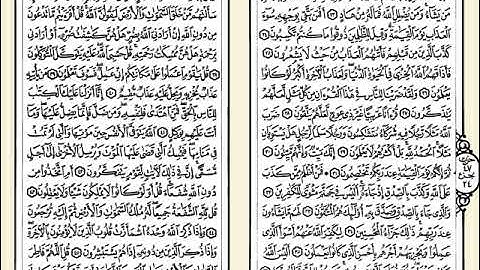 مَن يَشَاءُ وَمَن يُضْلِلِ اللَّهُ فَمَا لَهُ مِنْ هَادٍ ٢٣ أَفَمَن يَتَّقِي بِوَجْهِهِ سُوءَ
الْعَذَابِ يَوْمَ الْقِيَامَةِ وَقِيلَ لِلظَّالِمِينَ ذُوقُوا مَا كُنتُمْ تَكْسِبُونَ ٢٤
كَذَّبَ الَّذِينَ مِن قَبْلِهِمْ فَأَتَاهُمُ الْعَذَابُ مِنْ حَيْثُ لَا يَشْعُرُونَ ٢٥
فَأَذَاقَهُمُ اللَّهُ الْخِزْيَ فِي الْحَيَاةِ الدُّنْيَا وَلَعَذَابُ الْآخِرَةِ أَكْبَرُ لَوْ كَانُوا
يَعْلَمُونَ ٢٦ وَلَقَدْ ضَرَبْنَا لِلنَّاسِ فِي هَذَا الْقُرْآنِ مِن كُلِّ مَثَلٍ لَّعَلَّهُمْ
يَتَذَكَّرُونَ ٢٧ قُرْآنًا عَرَبِيًّا غَيْرَ ذِي عِوَجٍ لَّعَلَّهُمْ يَتَّقُونَ ٢٨
ضَرَبَ اللَّهُ مَثَلًا رَّجُلًا فِيهِ شُرَكَاءُ مُتَشَاكِسُونَ وَرَجُلًا سَلَمًا لِّرَجُلٍ هَلْ يَسْتَوِيَانِ
مَثَلًا الْحَمْدُ لِلَّهِ بَلْ أَكْثَرُهُمْ لَا يَعْلَمُونَ ٢٩ إِنَّكَ مَيِّتٌ وَإِنَّهُم مَّيِّتُونَ ٣٠
ثُمَّ إِنَّكُمْ يَوْمَ الْقِيَامَةِ عِندَ رَبِّكُمْ تَخْتَصِمُونَ ٣١ فَمَنْ أَظْلَمُ مِمَّن كَذَبَ
عَلَى اللَّهِ وَكَذَّبَ بِالصِّدْقِ إِذْ جَاءَهُ أَلَيْسَ فِي جَهَنَّمَ مَثْوًى لِّلْكَافِرِينَ ٣٢
وَالَّذِي جَاءَ بِالصِّدْقِ وَصَدَّقَ بِهِ أُولَئِكَ هُمُ الْمُتَّقُونَ ٣٣ لَهُم مَّا يَشَاءُونَ
عِندَ رَبِّهِمْ ذَلِكَ جَزَاءُ الْمُحْسِنِينَ ٣٤ لِيُكَفِّرَ اللَّهُ عَنْهُمْ أَسْوَأَ الَّذِي
عَمِلُوا وَيَجْزِيَهُمْ أَجْرَهُم بِأَحْسَنِ الَّذِي كَانُوا يَعْمَلُونَ ٣٥ أَلَيْسَ اللَّهُ
سَأَلْتَهُم مَّنْ خَلَقَ السَّمَاوَاتِ وَالْأَرْضَ لَيَقُولُنَّ اللَّهُ قُلْ أَفَرَأَيْتُم مَّا تَدْعُونَ
مِن دُونِ اللَّهِ إِنْ أَرَادَنِيَ اللَّهُ بِضُرٍّ هَلْ هُنَّ كَاشِفَاتُ ضُرِّهِ أَوْ أَرَادَنِي
بِرَحْمَةٍ هَلْ هُنَّ مُمْسِكَاتُ رَحْمَتِهِ قُلْ حَسْبِيَ اللَّهُ عَلَيْهِ يَتَوَكَّلُ الْمُتَوَكِّلُونَ
٣٨ قُلْ يَا قَوْمِ اعْمَلُوا عَلَى مَكَانَتِكُمْ إِنِّي عَامِلٌ فَسَوْفَ تَعْلَمُونَ ٣٩ مَن يَأْتِيهِ
عَذَابٌ يُخْزِيهِ وَيَحِلُّ عَلَيْهِ عَذَابٌ مُّقِيمٌ ٤٠ إِنَّا أَنزَلْنَا عَلَيْكَ الْكِتَابَ
لِلنَّاسِ بِالْحَقِّ فَمَنِ اهْتَدَى فَلِنَفْسِهِ وَمَن ضَلَّ فَإِنَّمَا يَضِلُّ عَلَيْهَا وَمَا
أَنتَ عَلَيْهِم بِوَكِيلٍ ٤١ اللَّهُ يَتَوَفَّى الْأَنفُسَ حِينَ مَوْتِهَا وَالَّتِي لَمْ تَمُتْ
فِي مَنَامِهَا فَيُمْسِكُ الَّتِي قَضَى عَلَيْهَا الْمَوْتَ وَيُرْسِلُ الْأُخْرَى إِلَى أَجَلٍ
مُّسَمًّى إِنَّ فِي ذَلِكَ لَآيَاتٍ لِّقَوْمٍ يَتَفَكَّرُونَ ٤٢ أَمِ اتَّخَذُوا مِن
دُونِ اللَّهِ شُفَعَاءَ قُلْ أَوَلَوْ كَانُوا لَا يَمْلِكُونَ شَيْئًا وَلَا يَعْقِلُونَ ٤٣
قُل لِّلَّهِ الشَّفَاعَةُ جَمِيعًا لَّهُ مُلْكُ السَّمَاوَاتِ وَالْأَرْضِ ثُمَّ إِلَيْهِ تُرْجَعُونَ
٤٤ وَإِذَا ذُكِرَ اللَّهُ وَحْدَهُ اشْمَأَزَّتْ قُلُوبُ الَّذِينَ لَا يُؤْمِنُونَ بِالْآخِرَةِ
وَإِذَا ذُكِرَ الَّذِينَ مِن دُونِهِ إِذَا هُمْ يَسْتَبْشِرُونَ ٤٥ قُلِ اللَّهُمَّ فَاطِرَ